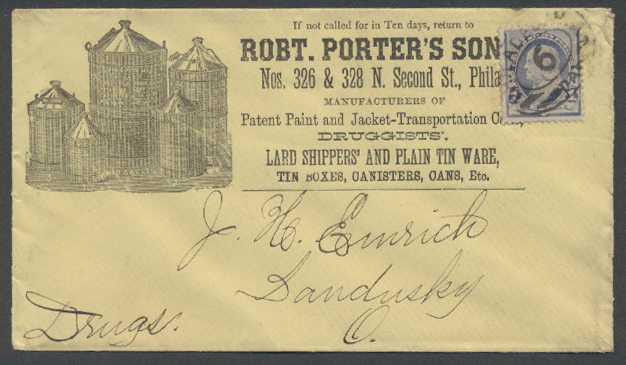 If not called for in Ten days, return to
ROBT. PORTER'S SON
Nos. 326 & 328 N. Second St., Phila
MANUFACTURERS OF
Patent Paint and Jacket-Transportation
DRUGGISTS',
LARD SHIPPERS' AND PLAIN TIN WARE,
TIN BOXES, CANISTERS, CANS, Etc.
6
J. H. Emrich
Sandusky
O.
Drugs.